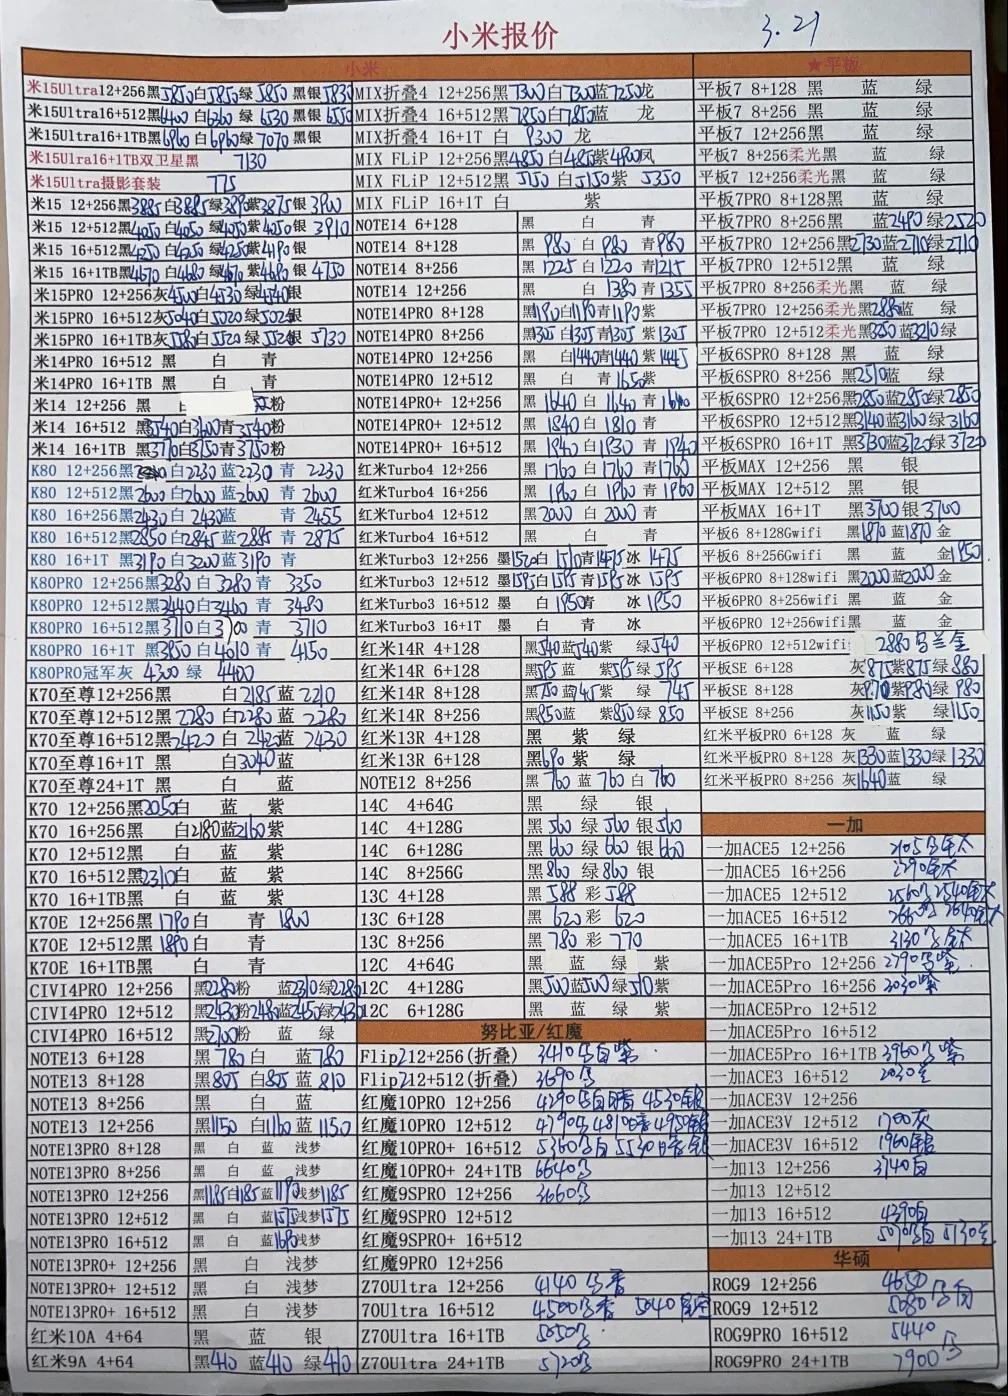 小米报价
3.21
小米
米15Ultra12+256黑5850白5850绿5850 黑银5830
米15Ultra16+512黑6400白6360绿 6530 黑银 6550
米15Ultra16+1TB黑6960白6960绿7070 黑银
米15Ulra16+1TB双卫星黑 7130
米15Ultra摄影套装 775
米15 12+256黑3885白3885绿3890紫3875银3900
米15 12+512黑4050白4050绿4050紫4050银 3910
米15 16+512黑4250白4250绿4250紫4190银
米15 16+1TB黑4670白4680绿4670紫4680银 4750
米15PRO 12+256灰4500白4530绿4540银
米15PRO 16+512灰5040白5020绿5020银
米15PRO 16+1TB灰5580白5520绿5520银 5730
米14PRO 16+512 黑 白 青
米14PRO 16+1TB 黑 白 青
米14 12+256 黑 粉
米14 16+512 黑3540白3400青3540粉
米14 16+1TB 黑3770白3750青3750粉
K80 12+256黑 白2230蓝2230 青 2230
K80 12+512黑2600白2600蓝2600 青 2600
K80 16+256黑2430白 2430蓝 青 2455
K80 16+512黑2850白2845蓝2885 青 2875
K80 16+1T 黑3190白3200蓝3190 青
K80PRO 12+256黑3280白3280青 3350
K80PRO 12+512黑3440白3460 青 3480
K80PRO 16+512黑3710白 青 3710
K80PRO 16+1T 黑3950白4010青 4150
K80PRO冠军灰 4300 绿 4400
K70至尊12+256黑 白2185蓝 2210
K70至尊12+512黑2280 白2280蓝 2280
K70至尊16+512黑2420 白 2420蓝 2430
K70至尊16+1T 黑 白3040蓝
K70至尊24+1T 黑 白 蓝
K70 12+256黑2050白 蓝 紫
K70 16+256黑 白2180蓝2160紫
K70 12+512黑 白 蓝 紫
K70 16+512黑2310白 蓝 紫
K70 16+1TB黑 白 蓝 紫
K70E 12+256黑 1790白 青 1800
K70E 12+512黑1890白 青
K70E 16+1TB黑 白 青
CIVI4PRO 12+256 黑2280粉 蓝2310绿2280
CIVI4PRO 12+512 黑2430粉2480蓝2450绿2430
CIVI4PRO 16+512 黑2700粉 蓝 绿
NOTE13 6+128 黑 780白 蓝780
NOTE13 8+128 黑805 白805 蓝 810
NOTE13 8+256 黑 白 蓝
NOTE13 12+256 黑1150 白1160 蓝 1150
NOTE13PRO 8+128 黑 白 蓝 浅梦
NOTE13PRO 8+256 黑 白 蓝 浅梦
NOTE13PRO 12+256 黑1185白1185蓝1190浅梦1185
NOTE13PRO 12+512 黑 白 蓝1575浅梦1575
NOTE13PRO 16+512 黑 白 蓝1690浅梦
NOTE13PRO+ 12+256 黑 白 浅梦
NOTE13PRO+ 12+512 黑 白 浅梦
NOTE13PRO+ 16+512 黑 白 浅梦
红米10A 4+64 黑 蓝 银
红米9A 4+64 黑410 蓝410 绿410
MIX折叠4 12+256黑7300白7300蓝7250龙
MIX折叠4 16+512黑7850白7850蓝 龙
MIX折叠4 16+1T 白 9300 龙
MIX FLiP 12+256黑4850白4850紫4900凤
MIX FLiP 12+512黑 5150 白5150紫 5350
MIX FLiP 16+1T 白 紫
NOTE14 6+128 黑 白 青
NOTE14 8+128 黑 980 白 980 青980
NOTE14 8+256 黑 1225 白1220 青1215
NOTE14 12+256 黑 白1380青1355
NOTE14PRO 8+128 黑1190白1190青1190紫
NOTE14PRO 8+256 黑1305白1305青1305 紫1305
NOTE14PRO 12+256 黑 白1440青1440 紫1445
NOTE14PRO 12+512 黑 白 青1650紫
NOTE14PRO+ 12+256 黑1640 白 1640 青1640
NOTE14PRO+ 12+512 黑1840 白1810 青
NOTE14PRO+ 16+512 黑1940白1930 青 1940
红米Turbo4 12+256 黑1760 白 1760 青1760
红米Turbo4 16+256 黑 1960 白 1960 青 1960
红米Turbo4 12+512 黑2000 白2000 青
红米Turbo4 16+512 黑 白 青
红米Turbo3 12+256 墨1520白 1510青1475 冰 1475
红米Turbo3 12+512 墨1595白1595青1595 冰 1595
红米Turbo3 16+512 墨 白 1950青 冰 1950
红米Turbo3 16+1T 墨 白 青 冰
红米14R 4+128 黑540蓝540紫 绿540
红米14R 6+128 黑595蓝 紫595绿 595
红米14R 8+128 黑750 蓝745紫 绿 745
红米14R 8+256 黑850蓝 紫850绿 850
红米13R 4+128 黑 紫 绿
红米13R 6+128 黑690 紫 绿
NOTE12 8+256 黑 760 蓝 760 白 760
14C 4+64G 黑 绿 银
14C 4+128G 黑 560 绿 560 银560
14C 6+128G 黑660 绿 660 银 660
14C 8+256G 黑860 绿860 银
13C 4+128 黑 588 彩 588
13C 6+128 黑 620 彩 620
13C 8+256 黑 780 彩 770
12C 4+64G 黑 蓝 绿 紫
12C 4+128G 黑500蓝500绿510紫
12C 6+128G 黑 蓝 绿 紫
努比亚/红魔
Flip212+256(折叠) 3410 白紫
Flip212+512(折叠) 3690
红魔10PRO 12+256 4290 4530银
红魔10PRO 12+512 4790 4810 4950银
红魔10PRO+ 16+512 5360 5530
红魔10PRO+ 24+1TB 6640
红魔9SPRO 12+256 3660
红魔9SPRO 12+512
红魔9SPRO+ 16+512
红魔9PRO 12+256
Z70Ultra 12+256 4140
70Ultra 16+512 4500 5040
Z70Ultra 16+1TB 5050
Z70Ultra 24+1TB 5720
★平板
平板7 8+128 黑 蓝 绿
平板7 8+256 黑 蓝 绿
平板7 12+256 黑 蓝 绿
平板7 8+256柔光黑 蓝 绿
平板7 12+256柔光黑 蓝 绿
平板7PRO 8+128黑 蓝 绿
平板7PRO 8+256黑 蓝2490绿2520
平板7PRO 12+256黑2730蓝2710绿2710
平板7PRO 12+512黑 蓝 绿
平板7PRO 8+256柔光黑 蓝 绿
平板7PRO 12+256柔光黑2880蓝 绿
平板7PRO 12+512柔光黑3250蓝3210绿
平板6SPRO 8+128 黑 蓝 绿
平板6SPRO 8+256 黑2510蓝 绿
平板6SPRO 12+256黑2850蓝2850绿2850
平板6SPRO 12+512黑3140蓝3160绿3160
平板6SPRO 16+1T 黑3730蓝3720绿3720
平板MAX 12+256 黑 银
平板MAX 12+512 黑 银
平板MAX 16+1T 黑3700银3700
平板6 8+128Gwifi 黑1870 蓝1870 金
平板6 8+256Gwifi 黑 蓝 金1950
平板6PRO 8+128wifi 黑2000蓝2000 金
平板6PRO 8+256wifi 黑 蓝 金
平板6PRO 12+256wifi黑 蓝 金
平板6PRO 12+512wifi 2880 乌兰金
平板SE 6+128 灰875紫875绿880
平板SE 8+128 灰970紫980绿 980
平板SE 8+256 灰1150紫 绿1150
红米平板PRO 6+128 灰 蓝 绿
红米平板PRO 8+128 灰1330蓝1330绿 1330
红米平板PRO 8+256 灰1640蓝 绿
一加
一加ACE5 12+256 2105
一加ACE5 16+256 2290
一加ACE5 12+512 2560 2540
一加ACE5 16+512 2660 2640
一加ACE5 16+1TB 3130
一加ACE5Pro 12+256 2790
一加ACE5Pro 16+256 2030紫
一加ACE5Pro 12+512
一加ACE5Pro 16+512
一加ACE5Pro 16+1TB 3960 紫
一加ACE3 16+512 2030
一加ACE3V 12+256
一加ACE3V 12+512 1700灰
一加ACE3V 16+512 1960银
一加13 12+256 3740白
一加13 12+512
一加13 16+512 4390白
一加13 24+1TB 5070 白 5130
华硕
ROG9 12+256 4650
ROG9 12+512 5080 白
ROG9PRO 16+512 5440
ROG9PRO 24+1TB 7900